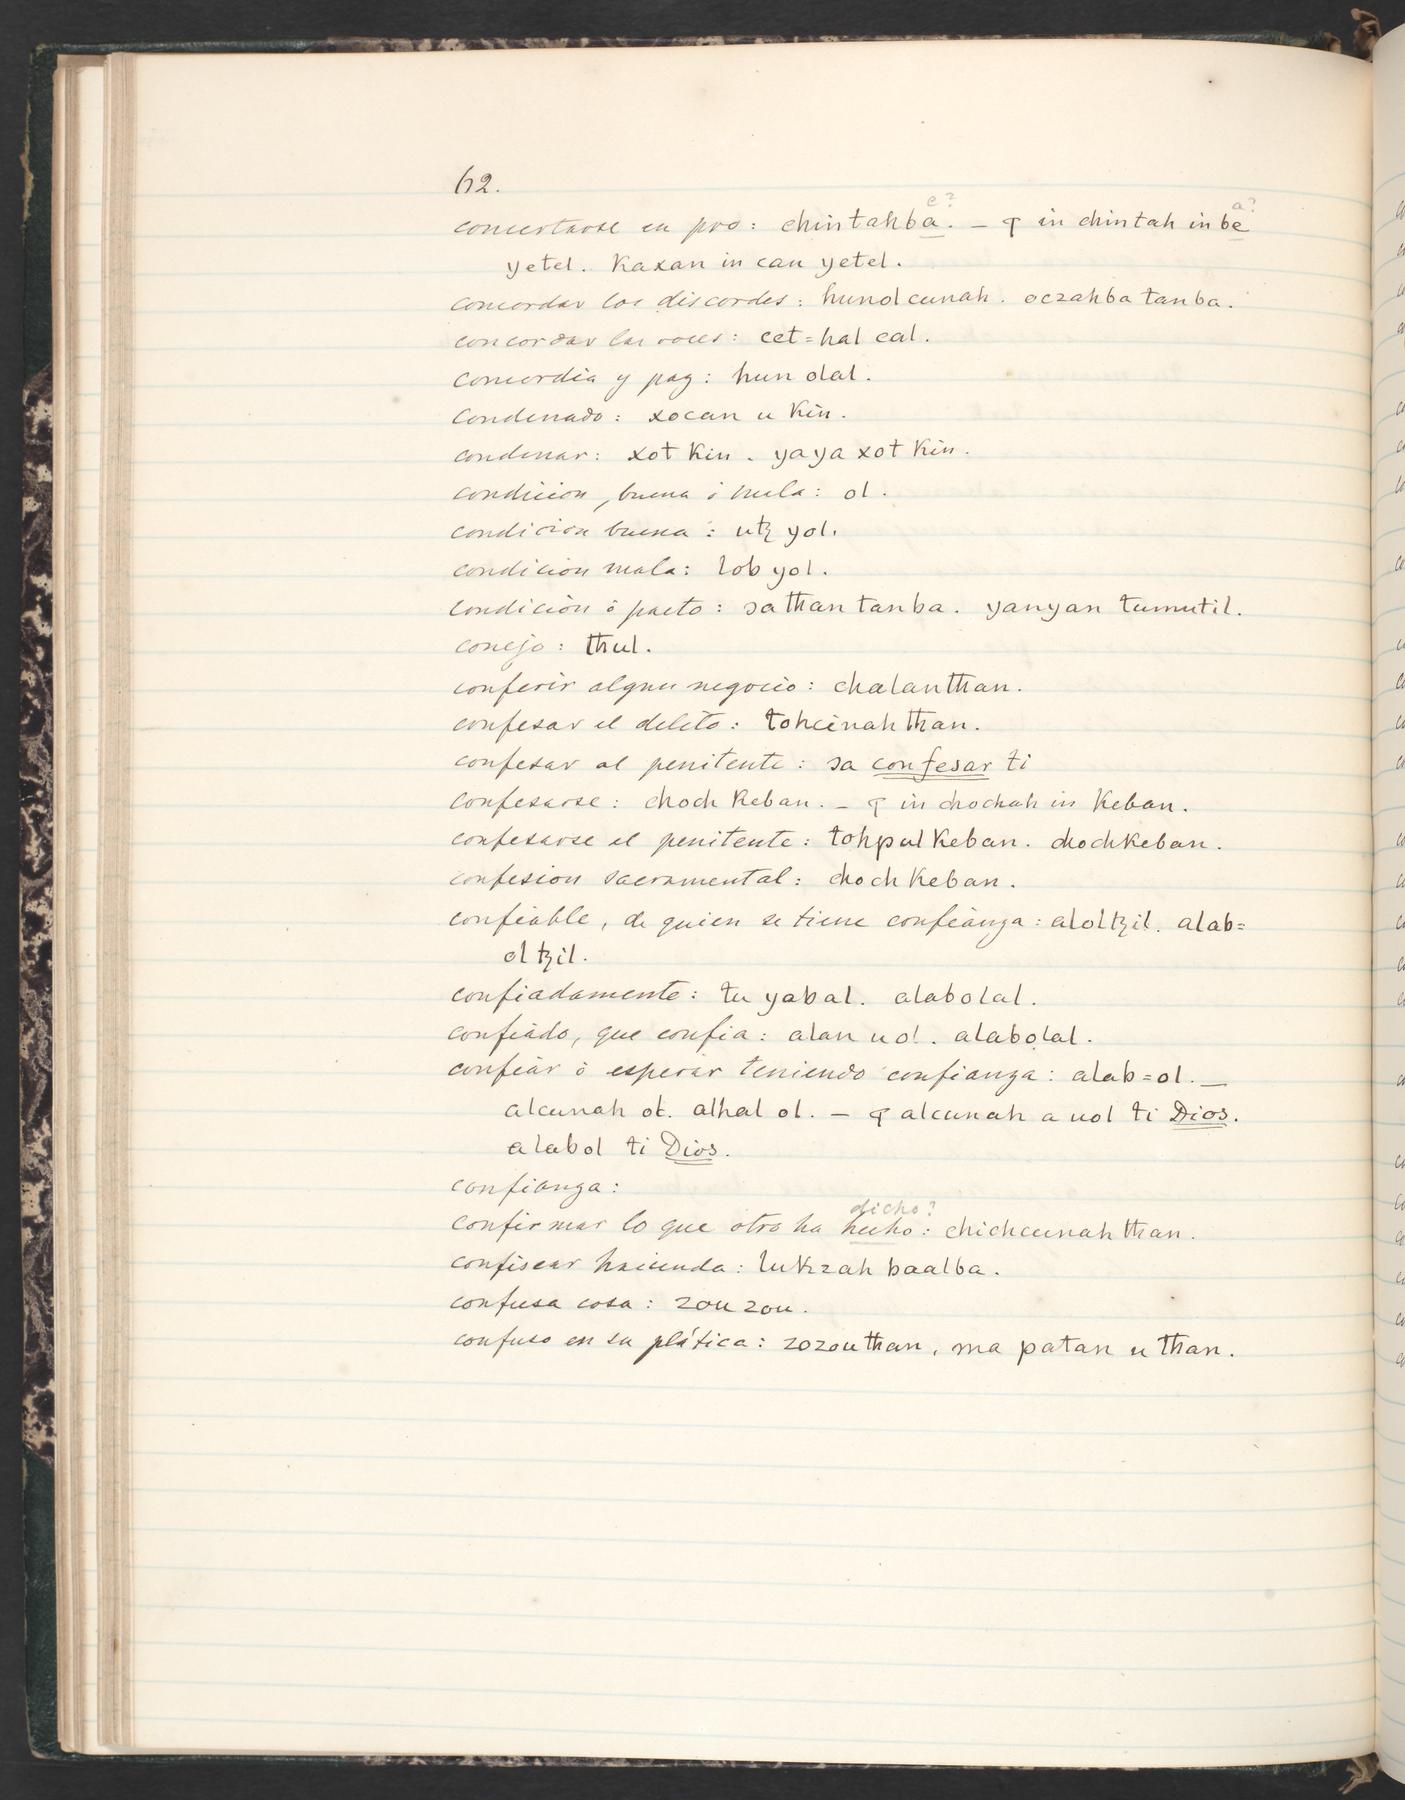 62.
concertarse en pro: chintahba. — ꝗ in chintah inbe
e? a?
yetel. Kaxan in can yetel.
concordar los discordes: hunolcunah. oczahba tanba.
concordar las voces: cet=hal cal.
concordia y paz: hun olal.
condenado: xocan u Kin.
condenar: xot Kin. yaya xot Kin.
condicion, buena ó mala: ol.
condicion buena: utꜩ yol.
condicion mala: lob yol.
condicion ó pacto: ɔa than tanba. yanyan tumutil.
conejo: thul.
conferir algun negocio: chalanthan.
confesar el delito: tohcinah than.
confesar al penitente: ɔa confesar ti
confesarse: choch Keban. — ꝗ in chochah in Keban.
confesarse el penitente: tohpul Keban. chochKeban.
confesion sacramental: choch Keban.
confiable, de quien se tiene confianza: alolꜩil. alab=
olꜩil.
confiadamente: tu yabal. alabolal.
confiado, que confia: alan uol. alabolal.
confiar ó esperar teniendo confianza: alab=ol. —
alcunah ol. alhal ol. — ꝗ alcunah a uol ti Dios.
alabol ti Dios.
confianza:
dicho?
confirmar lo que otro ha hecho: chichcunah than.
confiscar hacienda: lukzah baalba.
confusa cosa: zou zou.
confuso en su plática: zozouthan, ma patan u than.